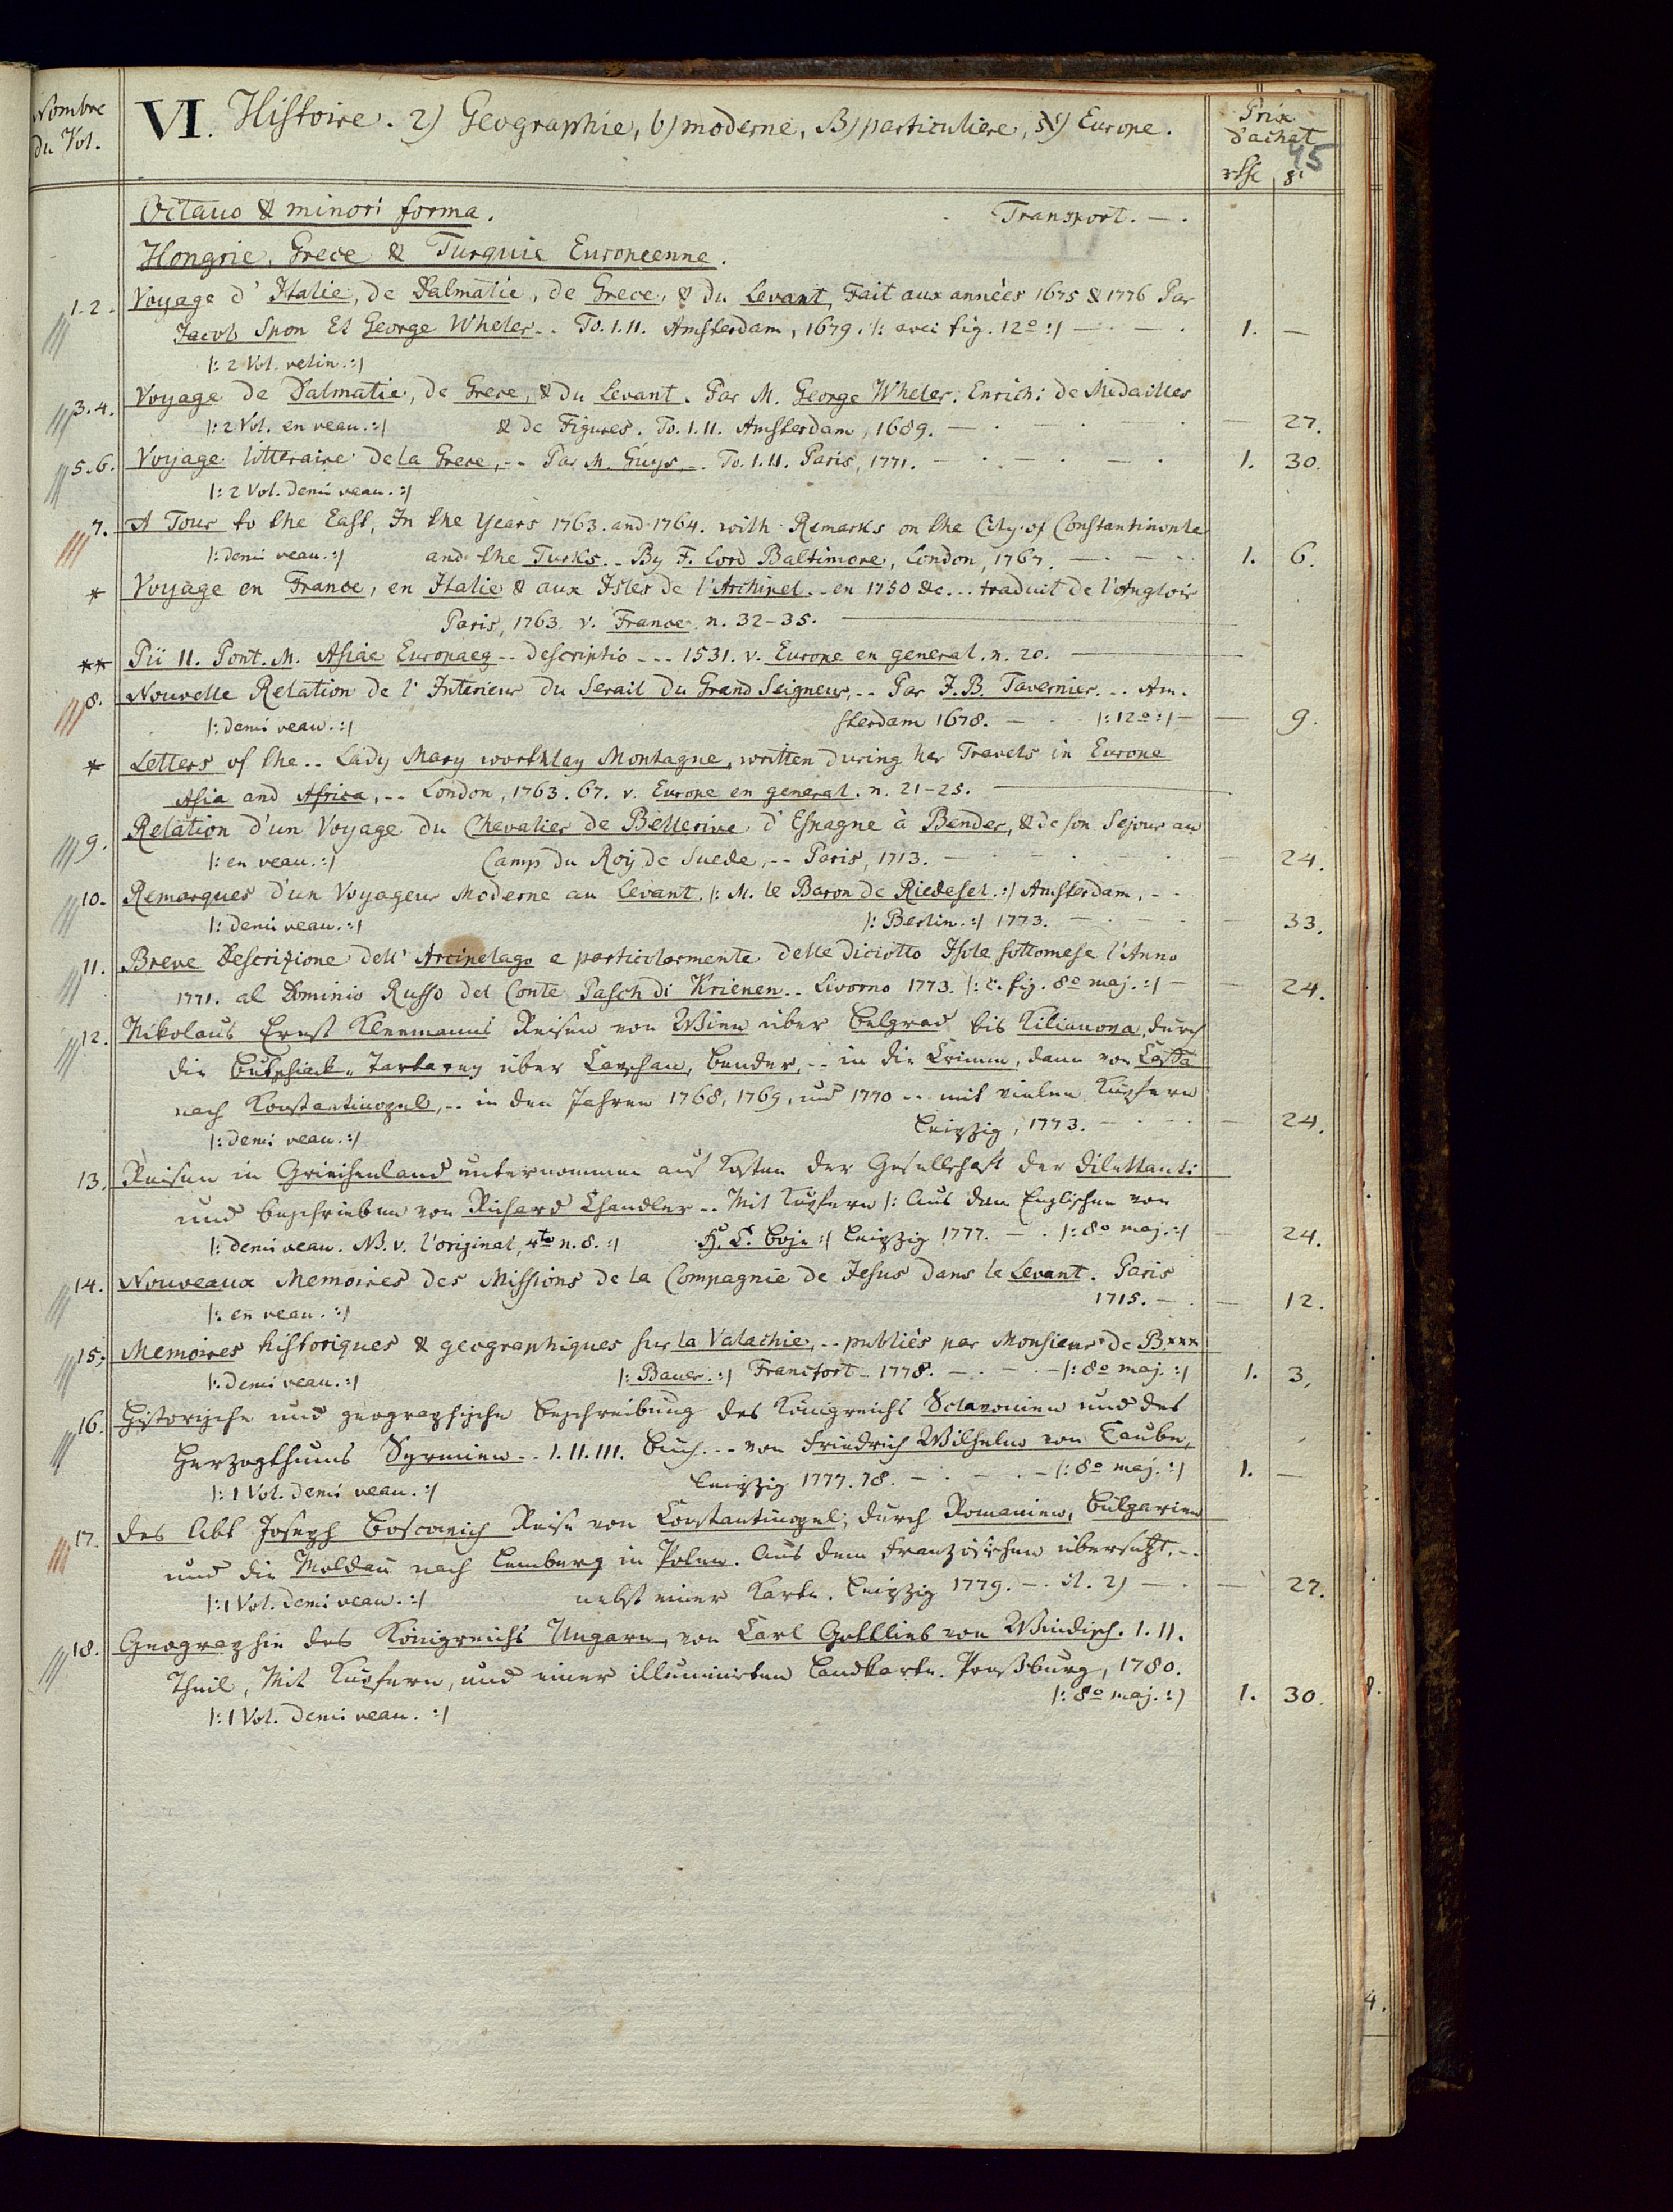 Nombre du Vol.
VI. Histoire. 2) Geographie, b) moderne, B) particuliere, א) Europe.
Prix d'achat
45
Octavo & minori forma. Transport. —.
Hongrie, Grece & Turquie Europeenne.
1.2. Voyage d'Italie, de Dalmatie, de Grece, & du Levant, Fait aux années 1675 & 1776 Par
Jacob Spon Et George Wheler.. To. I.II. Amsterdam, 1679. /: avec fig. 12º :/ — . — . 1. —
/: 2 Vol. velin. :/
3.4. Voyage de Dalmatie, de Grece, & du Levant. Par M. George Wheler. Enrich: de Medailles
/: 2 Vol. en veau. :/ & de Figures. To. I.II. Amsterdam, 1689. — . — . — . — 27.
5.6. Voyage litteraire de la Grece, -- Par M. Guys, -. To. I.II. Paris, 1771. — . — . — . 1. 30.
/: 2 Vol. demi veau. :/
7. A Tour to the East, In the Years 1763. and 1764. with Remarks on the City of Constantinople
/: demi veau. :/ and the Turks. .. By F. Lord Baltimore, London, 1767. — . — . 1. 6.
* Voyage en France, en Italie & aux Isles de l'Archipel.. en 1750 &c... traduit de l'Anglois
Paris, 1763. v. France. n. 32-35. —
** Pii II. Pont. M. Asiae Europaeq -- descriptio --- 1531. v. Europe en general. n. 20. —
8. Nouvelle Relation de l'Interieur du Serail du Grand Seigneur, -- Par J.B. Tavernier. .. Am-
/: demi veau. :/ sterdam 1678. — . /: 12º :/ — — 9.
* Letters of the.. Lady Mary worthley Montague, written during her Travels in Europe
Asia and Africa, -- London, 1763. 67. v. Europe en general. n. 21-25. —
9. Relation d'un Voyage du Chevalier de Bellerive d'Espagne à Bender, & de son Sejour au
/: en veau. :/ Camp du Roy de Suede, -- Paris, 1713. — . — . — . — 24.
10. Remarques d'un Voyageur Moderne au Levant. /: M. le Baron de Riedesel. :/ Amsterdam, --
/: demi veau. :/ /: Berlin. :/ 1773. — . — . — 33.
11. Breve Descrizione dell' Arcipelago e particolarmente delle diciotto Isole sottomese l'Anno
1771. al Dominio Russo del Conte Pasch di Krienen.. Livorno 1773. /: c. fig. 8º maj. :/ — — 24.
12. Nikolaus Ernst Kleemanns Reisen von Wien über Belgrad bis Kilianova, durch
die Butschiack-Tartarey über Cavschan, Bender, -- in die Crimm, dann von Caffa
nach Konstantinopel, -- in den Jahren 1768, 1769, und 1770 -- mit vielen Kupfern
/: demi veau. :/ Leipzig, 1773. — . — . — 24.
13. Reisen in Griechenland unternommen auf Kosten der Gesellschaft der Dilettanti
und beschrieben von Richard Chandler -- Mit Kupfern /: Aus dem Englischen von
/: demi veau. NB. v. l'original, 4to n. 8. :/ H. C. Boje :/ Leipzig 1777. — . /: 8º maj. :/ — 24.
14. Nouveaux Memoires des Missions de la Compagnie de Jesus dans le Levant. Paris
/: en veau. :/ 1715. — . — 12.
15. Memoires historiques & geographiques sur la Valachie, -- publiés par Monsieur de B***
/: demi veau. :/ /: Bauer. :/ Francfort - 1778. — . — . — /: 8º maj. :/ 1. 3.
16. Historische und geographische Beschreibung des Königreichs Sclavonien und des
Herzogthums Syrmien -- I. II. III. Buch. -- von Friedrich Wilhelm von Taube,
/: 1 Vol. demi veau. :/ Leipzig 1777. 78. — . — . — /: 8º maj. :/ 1. —
17. Des Abt Joseph Boscowich Reise von Constantinopel, durch Romanien, Bulgarien
und die Moldau nach Lemberg in Polen. Aus dem Französischen übersetzt. --
/: 1 Vol. demi veau. :/ nebst einer Karte. Leipzig 1779. — . — . — 27.
18. Geographie des Königreichs Ungarn, von Carl Gottlieb von Windisch. I. II.
Theil, Mit Kupfern, und einer illuminirten Landkarte. Preßburg, 1780.
/: 1 Vol. demi veau. :/ /: 8º maj. :/ 1. 30.